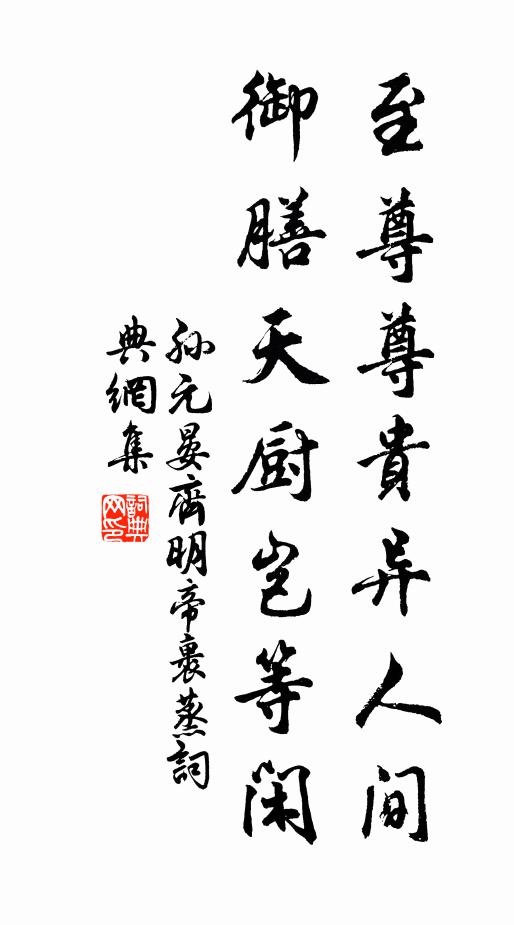 至尊尊貴异人间
御膳天厨岂等闲
孙元晏齊明帝裹蒸詞
典網集
詞典网印